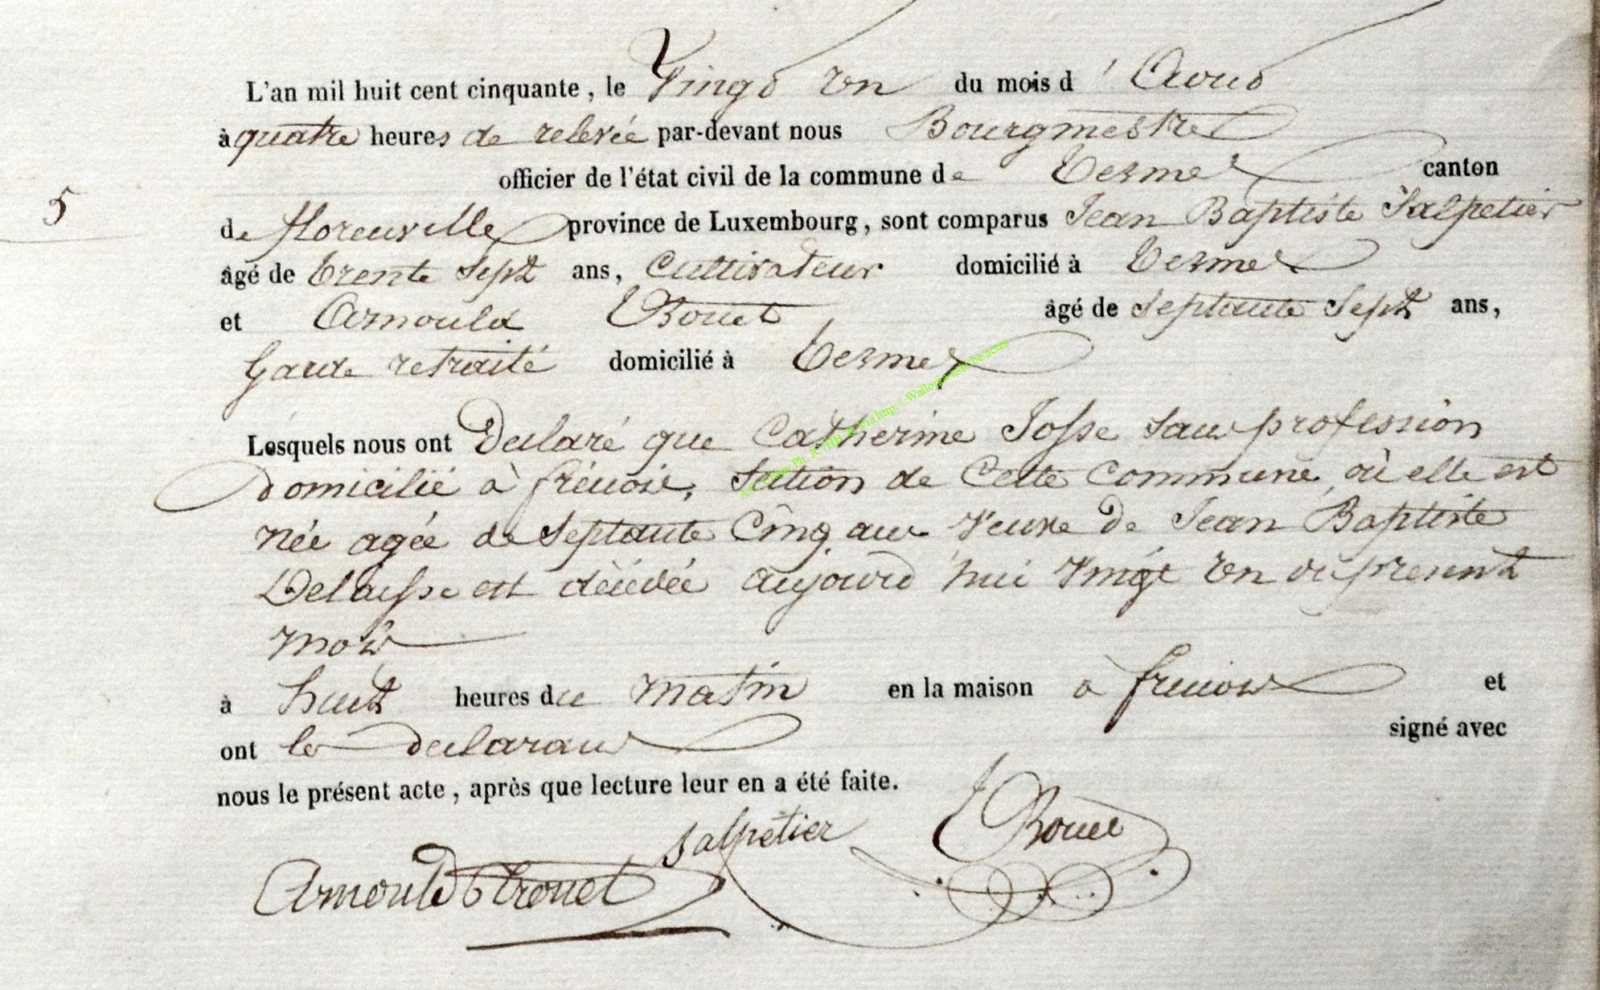 L'an mil huit cent cinquante, le Vingt un du mois d' Aout
à quatre heures de relevée par-devant nous Bourgmestre
officier de l'état civil de la commune de Termes canton
5
de florenville province de Luxembourg, sont comparus Jean Baptiste Salpetier
âgé de trente Sept ans, Cultivateur domicilié à Termes
et Arnould Trouet âgé de Septante Sept ans,
Garde retraité domicilié à Termes
Lesquels nous ont Déclaré que Catherine Josse sans profession
domicilié à frénois, Section de Cette Commune, où elle est
née agée de Septante Cinq ans Veuve de Jean Baptiste
est décédée aujourd'hui Vingt un du present
mois
à huit heures du matin en la maison à frenois et
ont les declarans signé avec
nous le présent acte, après que lecture leur en a été faite.
Salpétier
Arnould Trouet